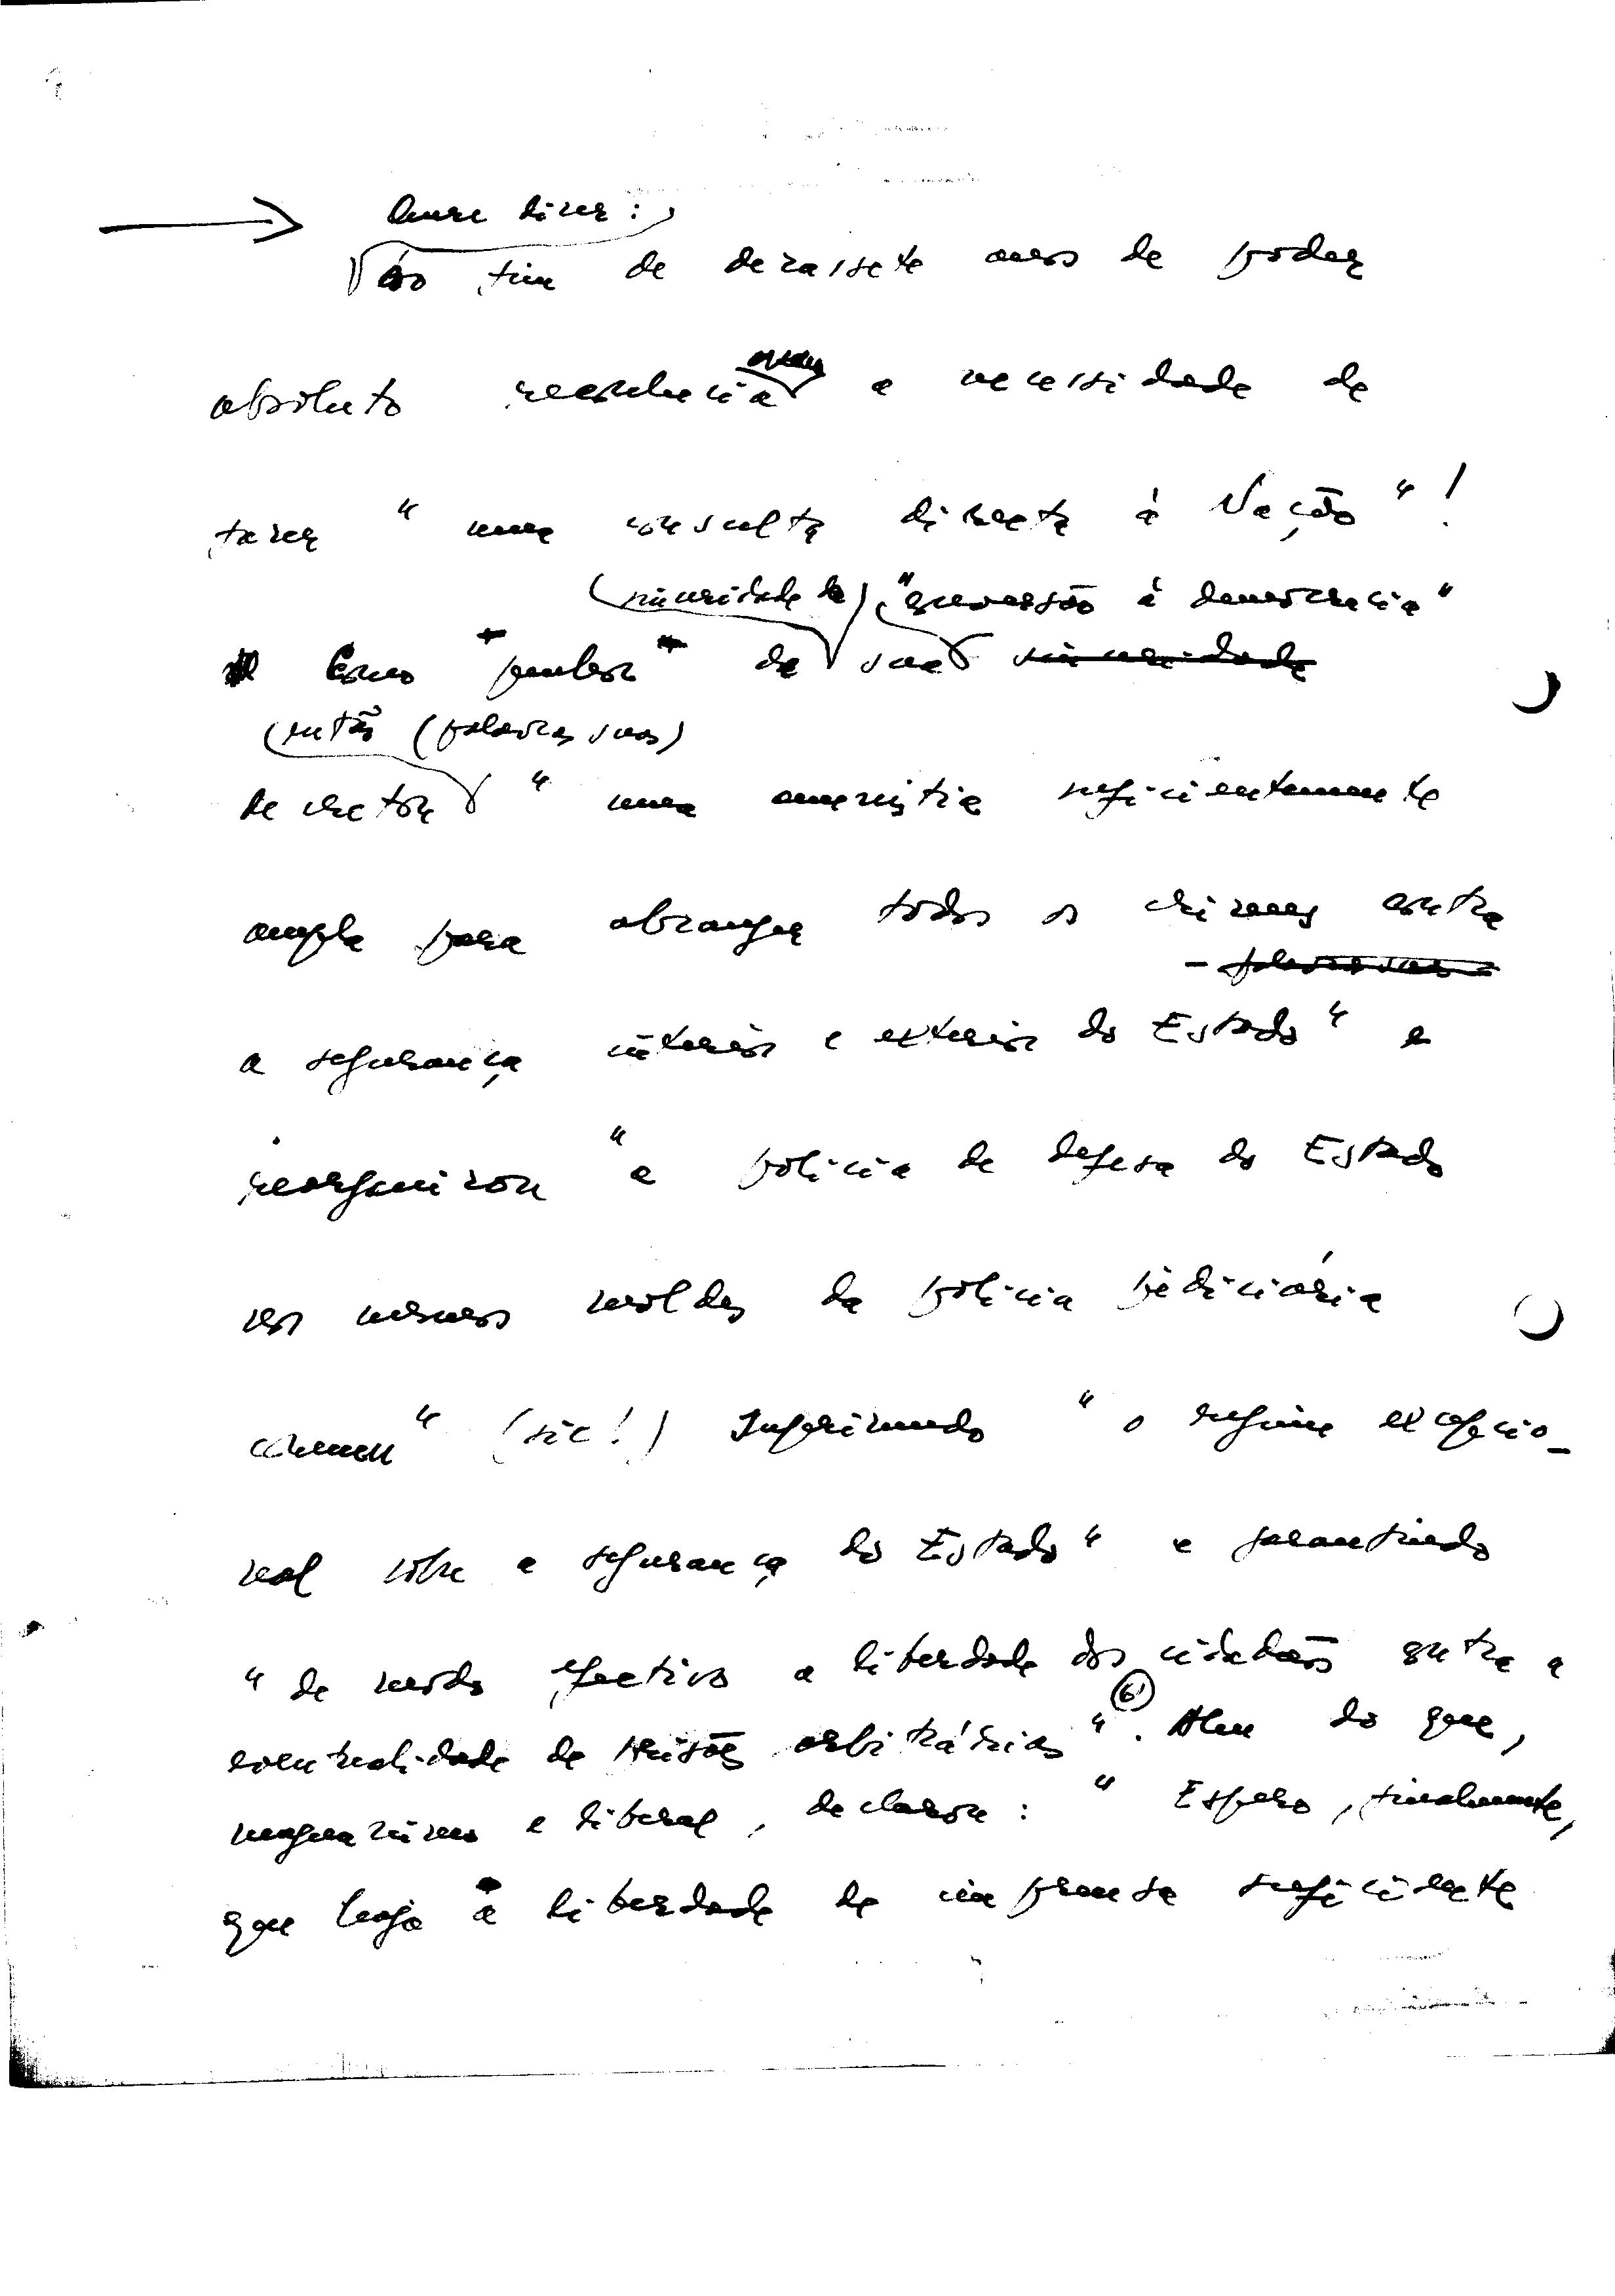 Quere dizer:
ao fim de dezassete anos de poder
absoluto reconhecia a necessidade de
fazer "uma consulta directa à Nação"!
(sinceridade da) "conversão à democracia"
Como "penhor" da sua sinceridade
então (palavras suas)
decretou "uma amnistia suficientemente
ampla para abranger todos os crimes contra
- palavras suas -
a segurança interior e exterior do Estado" e
reorganizou "a polícia de defesa do Estado
nos mesmos moldes da polícia judiciária
comum" (sic!) suprimindo "o regime excepcio-
nal sobre a segurança do Estado" e garantindo
"de modo efectivo a liberdade dos cidadãos contra a
eventualidade de prisões arbitrárias" (6). Alem do que,
magnanimo e liberal, declarou: "Espero, finalmente,
que haja a liberdade de imprensa suficiente